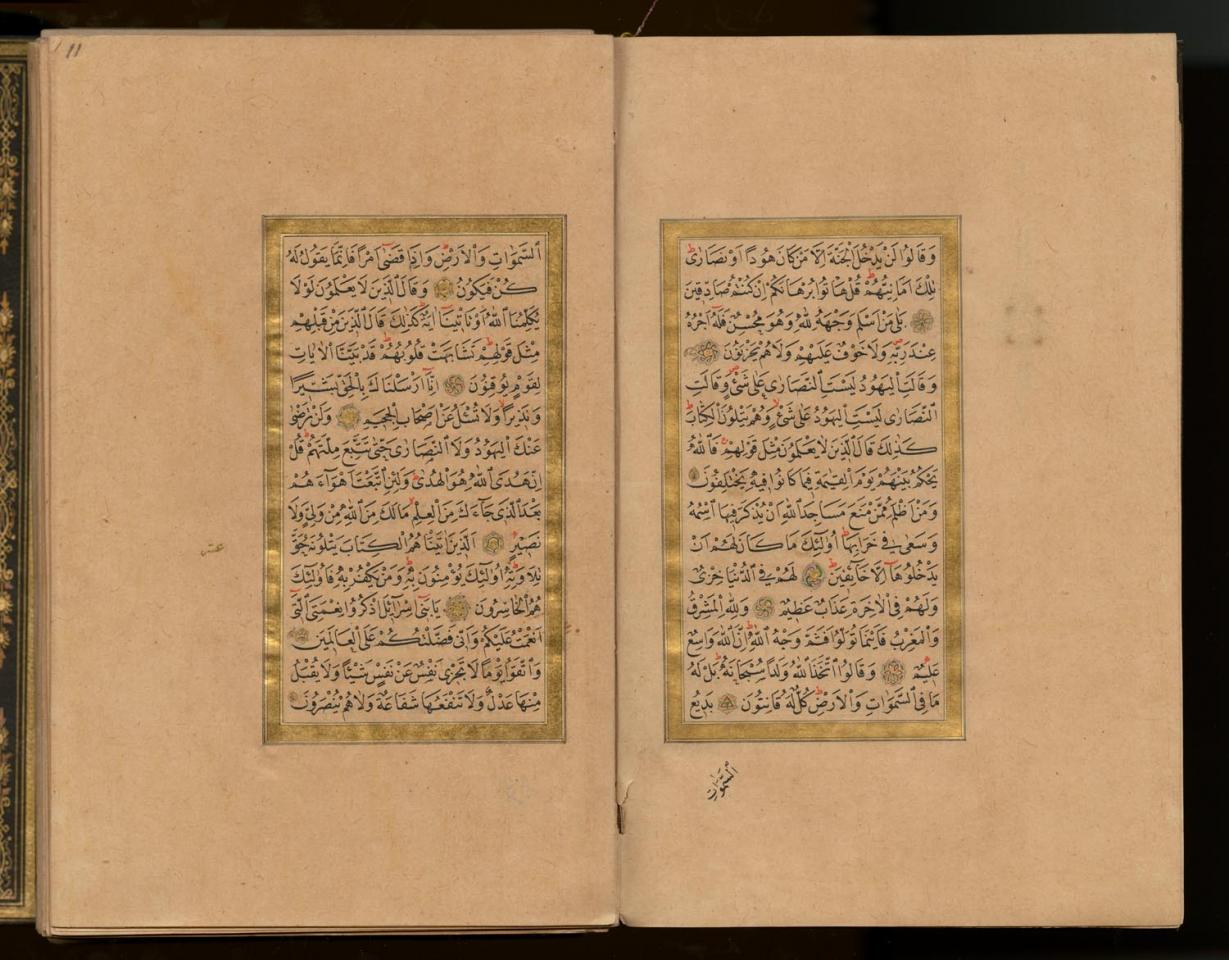 وَقَالُوا لَنْ يَدْخُلَ الْجَنَّةَ اِلَّا مَنْ كَانَ هُودًا اَوْ نَصَارٰى ط
تِلْكَ اَمَانِيُّهُمْ ط قُلْ هَاتُوا بُرْهَانَكُمْ اِنْ كُنْتُمْ صَادِقِينَ
بَلٰى مَنْ اَسْلَمَ وَجْهَهُ لِلّٰهِ وَهُوَ مُحْسِنٌ فَلَهُ اَجْرُهُ
عِنْدَ رَبِّهِ وَلَا خَوْفٌ عَلَيْهِمْ وَلَا هُمْ يَحْزَنُونَ
وَقَالَتِ الْيَهُودُ لَيْسَتِ النَّصَارٰى عَلٰى شَىْءٍ وَقَالَتِ
النَّصَارٰى لَيْسَتِ الْيَهُودُ عَلٰى شَىْءٍ لا وَهُمْ يَتْلُونَ الْكِتَابَ ط
كَذٰلِكَ قَالَ الَّذِينَ لَا يَعْلَمُونَ مِثْلَ قَوْلِهِمْ فَاللّٰهُ
يَحْكُمُ بَيْنَهُمْ يَوْمَ الْقِيٰمَةِ فِيمَا كَانُوا فِيهِ يَخْتَلِفُونَ
وَمَنْ اَظْلَمُ مِمَّنْ مَنَعَ مَسَاجِدَ اللّٰهِ اَنْ يُذْكَرَ فِيهَا اسْمُهُ
وَسَعٰى فِى خَرَابِهَا ط اُولٰئِكَ مَا كَانَ لَهُمْ اَنْ
يَدْخُلُوهَا اِلَّا خَائِفِينَ ط لَهُمْ فِى الدُّنْيَا خِزْىٌ
وَلَهُمْ فِى الْاٰخِرَةِ عَذَابٌ عَظِيمٌ وَلِلّٰهِ الْمَشْرِقُ
وَالْمَغْرِبُ فَاَيْنَمَا تُوَلُّوا فَثَمَّ وَجْهُ اللّٰهِ ط اِنَّ اللّٰهَ وَاسِعٌ
عَلِيمٌ وَقَالُوا اتَّخَذَ اللّٰهُ وَلَدًا سُبْحَانَهُ ط بَلْ لَهُ
مَا فِى السَّمٰوَاتِ وَالْاَرْضِ ط كُلٌّ لَهُ قَانِتُونَ بَدِيعُ
السَّمٰوَاتِ
11
السَّمٰوَاتِ وَالْاَرْضِ ط وَاِذَا قَضٰى اَمْرًا فَاِنَّمَا يَقُولُ لَهُ
كُنْ فَيَكُونُ وَقَالَ الَّذِينَ لَا يَعْلَمُونَ لَوْلَا
يُكَلِّمُنَا اللّٰهُ اَوْ تَأْتِينَا اٰيَةٌ كَذٰلِكَ قَالَ الَّذِينَ مِنْ قَبْلِهِمْ
مِثْلَ قَوْلِهِمْ تَشَابَهَتْ قُلُوبُهُمْ ط قَدْ بَيَّنَّا الْاٰيَاتِ
لِقَوْمٍ يُوقِنُونَ اِنَّا اَرْسَلْنَاكَ بِالْحَقِّ بَشِيرًا
وَنَذِيرًا وَلَا تُسْئَلُ عَنْ اَصْحَابِ الْجَحِيمِ وَلَنْ تَرْضٰى
عَنْكَ الْيَهُودُ وَلَا النَّصَارٰى حَتّٰى تَتَّبِعَ مِلَّتَهُمْ ط قُلْ
اِنَّ هُدَى اللّٰهِ هُوَ الْهُدٰى ط وَلَئِنِ اتَّبَعْتَ اَهْوَاءَهُمْ
بَعْدَ الَّذِى جَاءَكَ مِنَ الْعِلْمِ لا مَا لَكَ مِنَ اللّٰهِ مِنْ وَلِىٍّ وَلَا
نَصِيرٍ اَلَّذِينَ اٰتَيْنَاهُمُ الْكِتَابَ يَتْلُونَهُ حَقَّ
تِلَاوَتِهِ ط اُولٰئِكَ يُؤْمِنُونَ بِهِ ط وَمَنْ يَكْفُرْ بِهِ فَاُولٰئِكَ
هُمُ الْخَاسِرُونَ يَا بَنِى اِسْرَائِلَ اذْكُرُوا نِعْمَتِىَ الَّتِى
اَنْعَمْتُ عَلَيْكُمْ وَاَنِّى فَضَّلْتُكُمْ عَلَى الْعَالَمِينَ
وَاتَّقُوا يَوْمًا لَا تَجْزِى نَفْسٌ عَنْ نَفْسٍ شَيْئًا وَلَا يُقْبَلُ
مِنْهَا عَدْلٌ وَلَا تَنْفَعُهَا شَفَاعَةٌ وَلَا هُمْ يُنْصَرُونَ
عشر